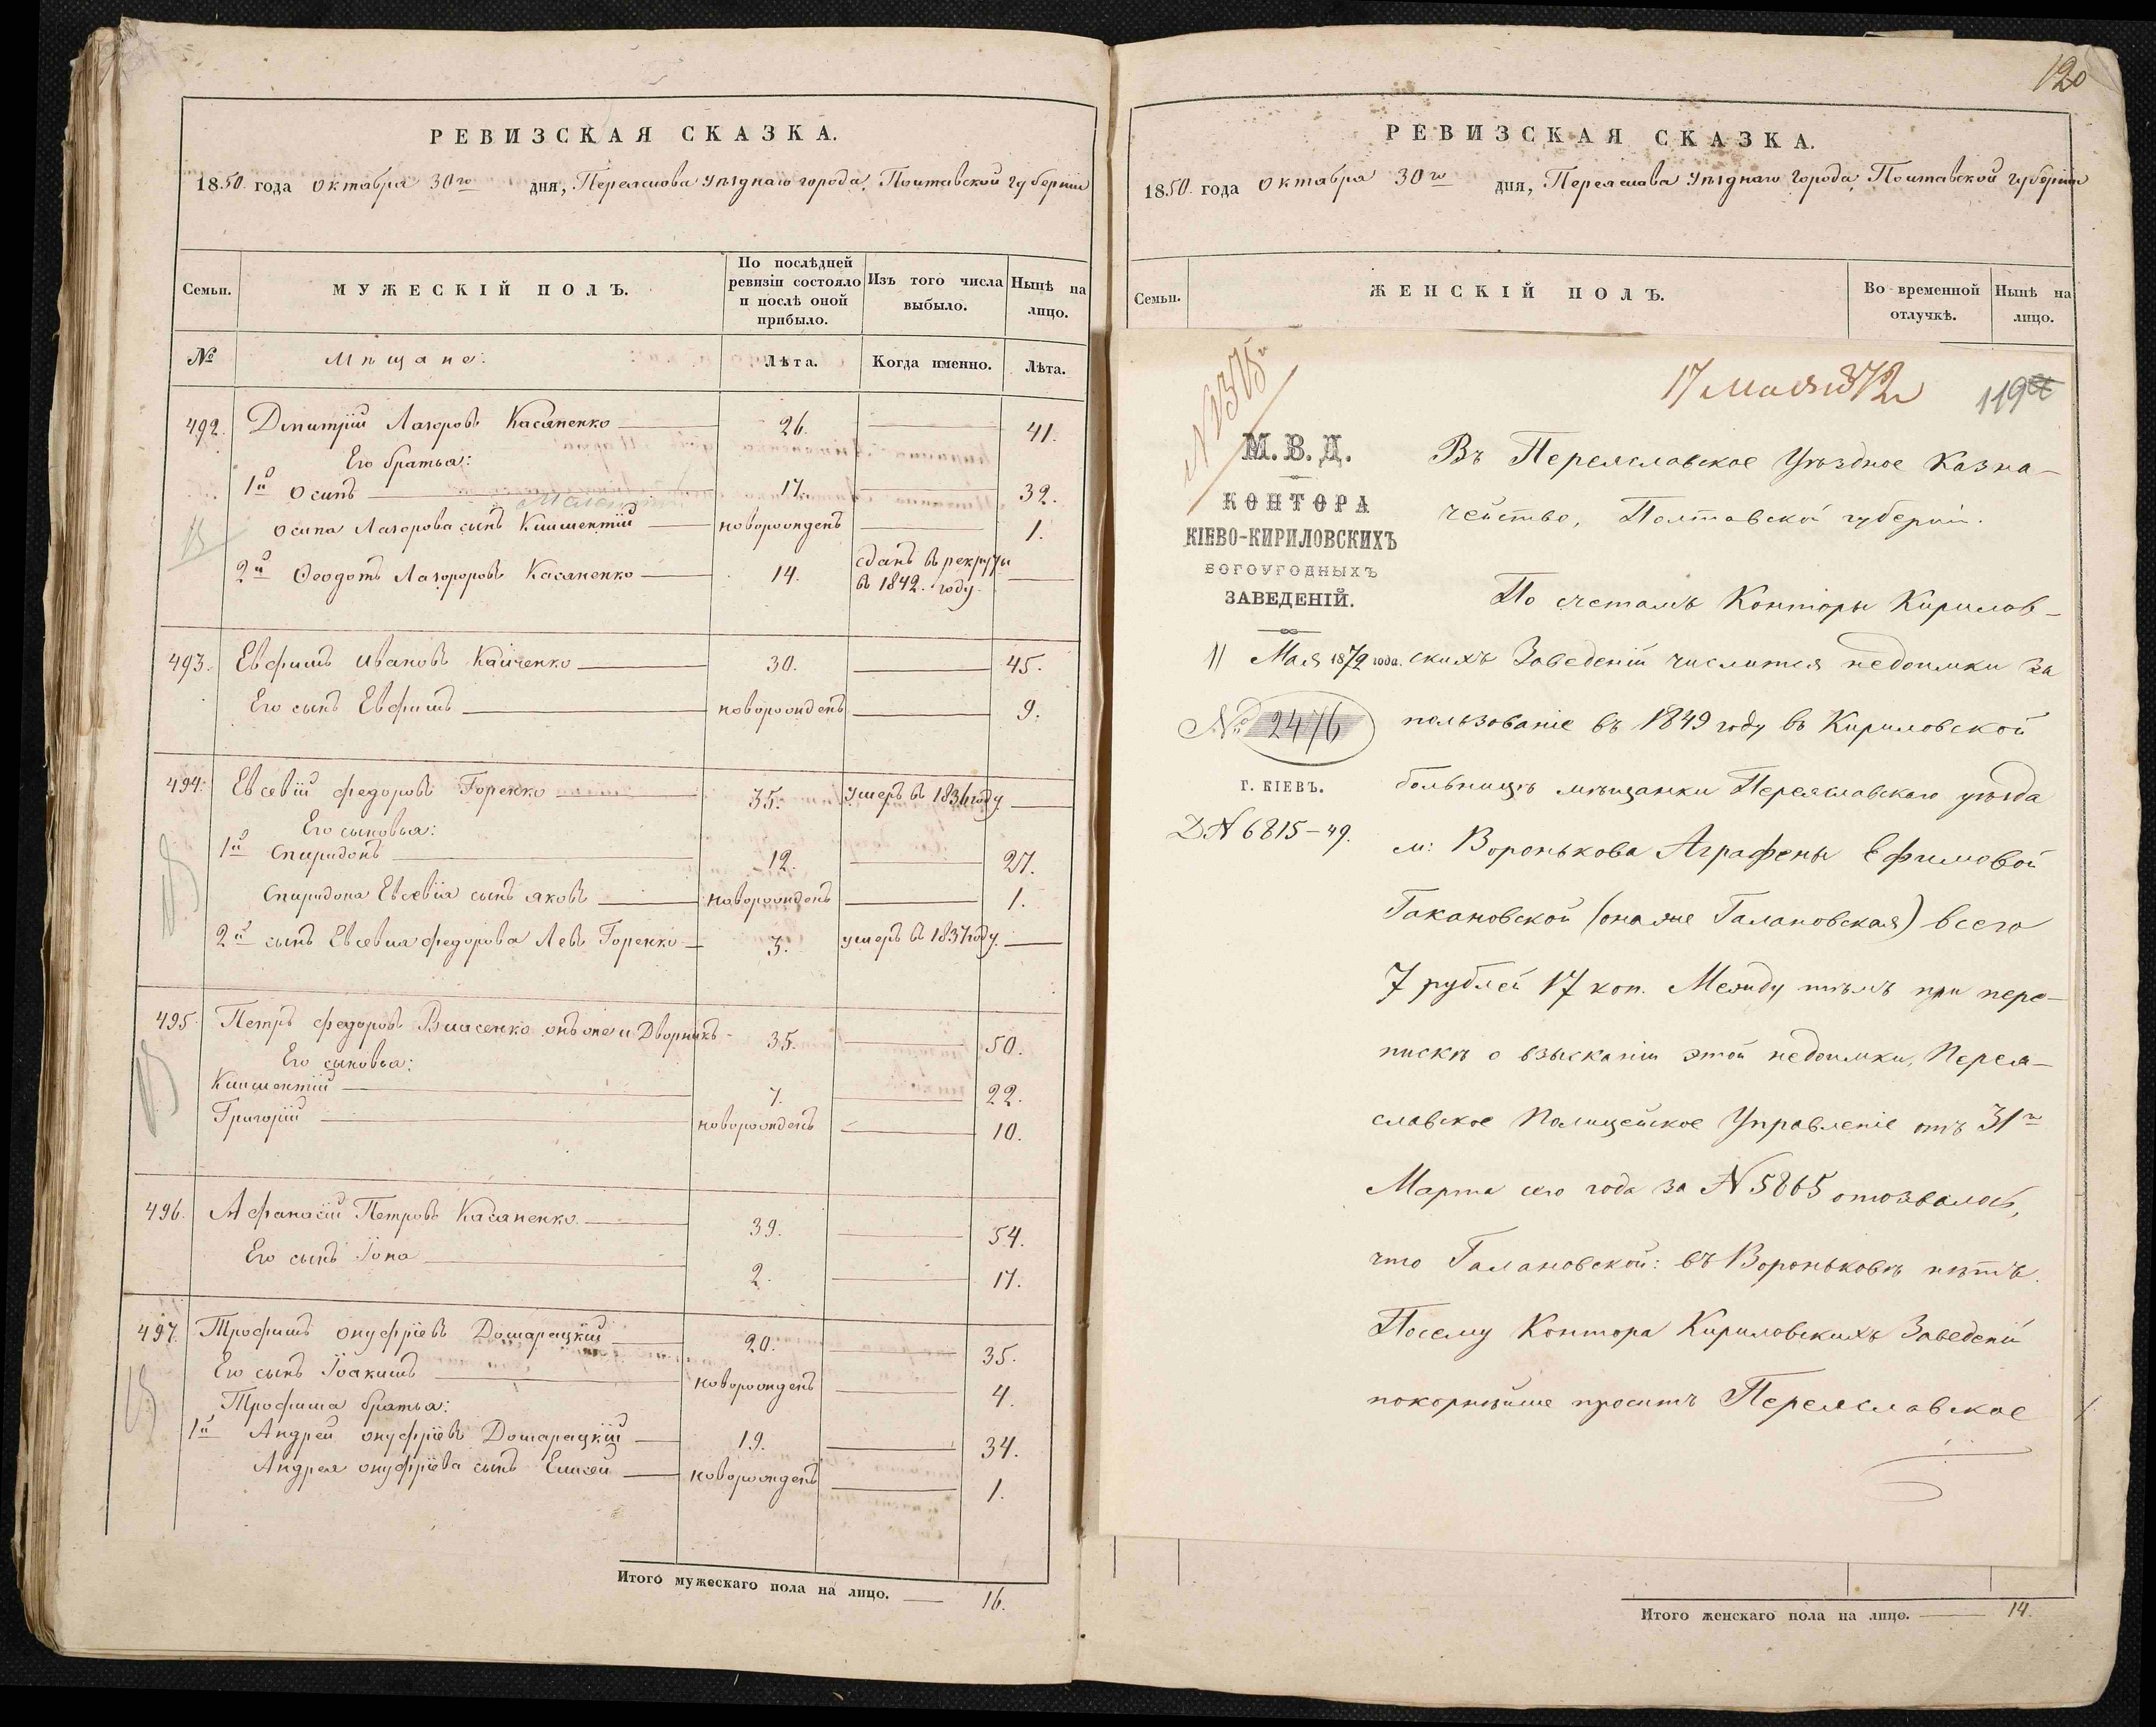 РЕВИЗСКАЯ СКАЗКА.
1850. года октября 30го дня, Переяслова уѣзднаго города, Полтавской губерніи
Семьи.
МУЖЕСКІЙ ПОЛЪ.
По послѣдней ревизіи состояло и послѣ оной прибыло.
Изъ того числа выбыло.
Нынѣ на лицо.
№
Мѣщане:
Лѣта.
Когда именно.
Лѣта.
492. Дмитрій Лазоровъ Касяненко 26. 41.
Его братья:
1й Осипъ 17. 32.
Осипа Лазорова сынъ Климентій новорожденъ 1.
2й Феодотъ Лазороровъ Касяненко 14. сданъ въ рекруты въ 1842. году.
493. Евфимъ Ивановъ Кайченко 30. 45.
Его сынъ Евфимъ новорожденъ 9.
494. Евсевій Федоровъ Горенко 35. умеръ въ 1836 году
Его сыновья:
1й Спиридонъ 12. 27.
Спиридона Евсевія сынъ Яковъ новорожденъ 1.
2й сынъ Евсевия Федорова Левъ Горенко 3. умеръ въ 1837 году.
495. Петръ Федоровъ Власенко онъ же и Дворникъ 35. 50.
Его сыновья:
Климентій 7. 22.
Григорій новорожденъ 10.
496. Афанасій Петровъ Касяненко 39. 54.
Его сынъ Іона 2. 17.
497. Трофимъ Онуфріевъ Домарацкій 20. 35.
Его сынъ Іоакимъ новорожденъ 4.
Трофима братья:
1й Андрей Онуфріевъ Домарацкій 19. 34.
Андрея Онуфріева сынъ Елисей новорожденъ 1.
Итого мужескаго пола на лицо. 16.
120
РЕВИЗСКАЯ СКАЗКА.
1850. года Октября 30го дня, Переяслава уѣзднаго города, Полтавской губерніи
Семьи.
ЖЕНСКІЙ ПОЛЪ.
Во временной отлучкѣ.
Нынѣ на лицо.
17 Мая 1872
119
М. В. Д.
КОНТОРА
КІЕВО-КИРИЛОВСКИХЪ
БОГОУГОДНЫХЪ
ЗАВЕДЕНІЙ.
11 Мая 1872 года.
№ 2476
Г. КІЕВЪ.
Д № 6815-49.
Въ Переяславское Уѣздное Казна-
чейство, Полтавской губерніи.
По счетамъ Конторы Кирилов-
скихъ Заведеній числится недоимки за
пользованіе въ 1849 году въ Кириловской
больницѣ мѣщанки Переяславскаго уѣзда
м: Воронькова Аграфены Ефимовой
Гакановской (она же Галановская) всего
7 рублей 17 коп. Между тѣмъ при пере-
пискѣ о взысканіи этой недоимки, Перея-
славское Полицейское Управленіе отъ 31го
Марта сего года за № 5865 отозвалось,
что Галановской: въ Вороньковѣ нѣтъ.
Посему Контора Кириловскихъ Заведеній
покорнѣйше проситъ Переяславское
Итого женскаго пола на лице. 14.